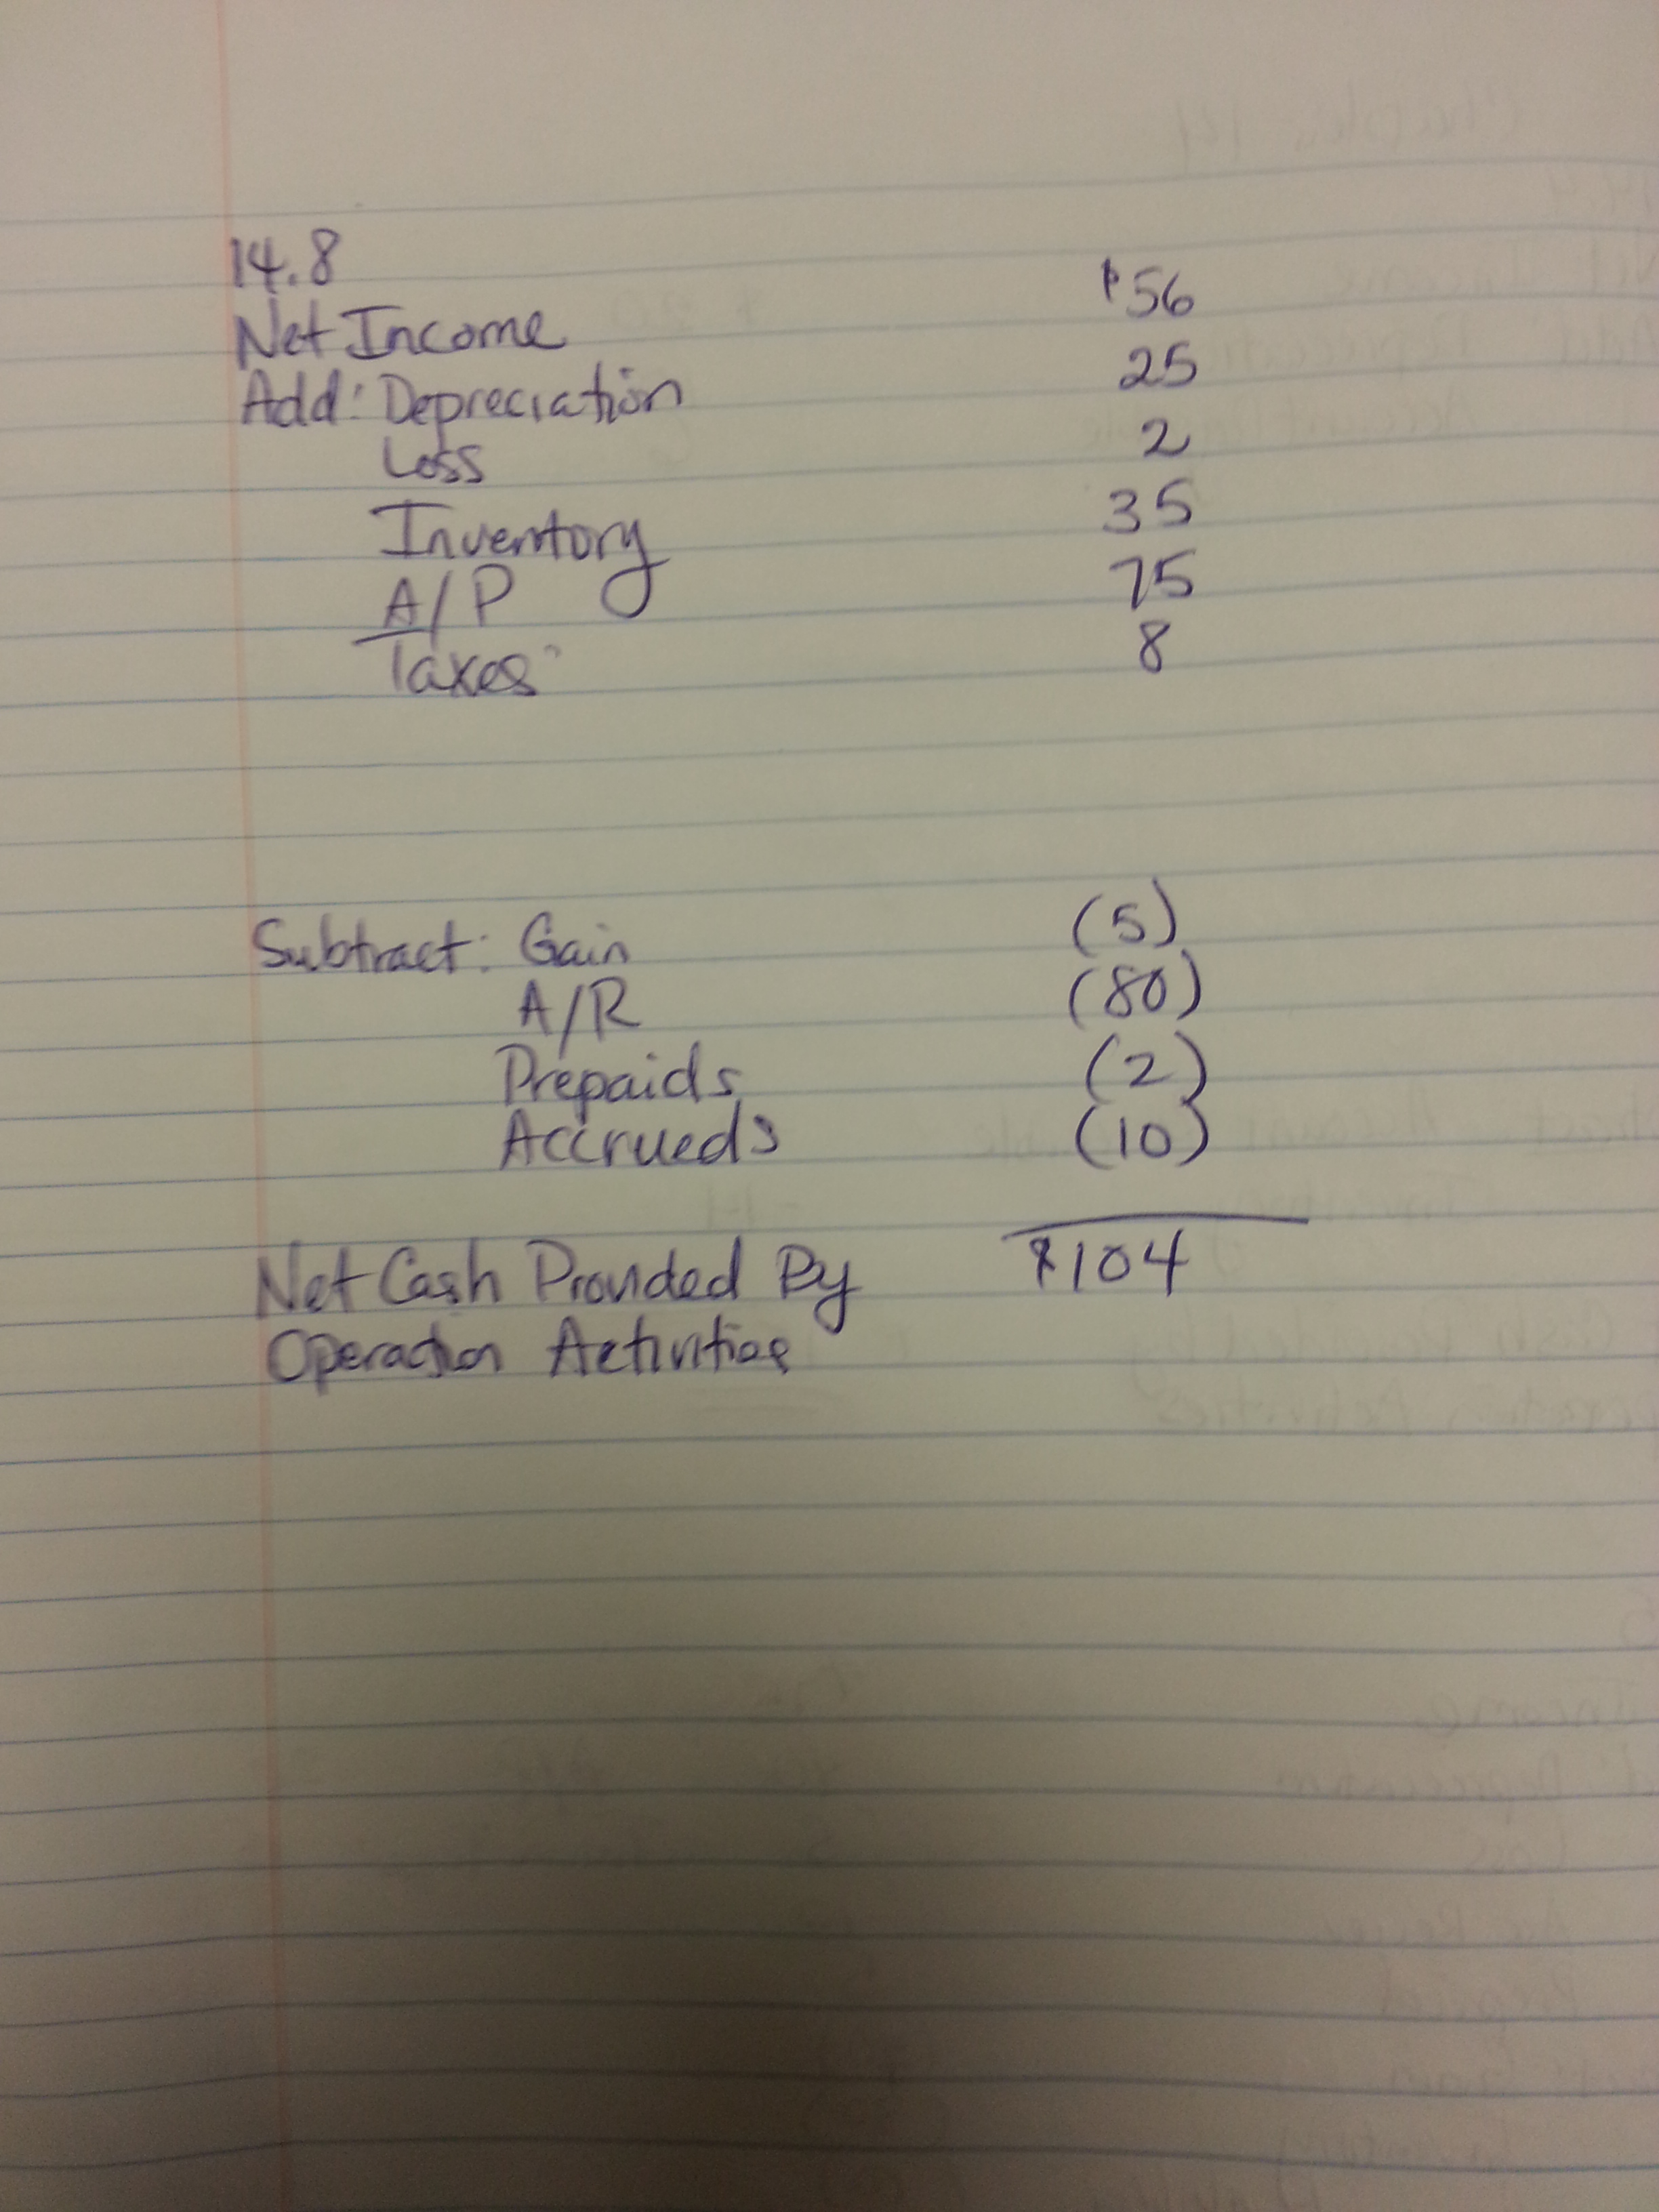 14.8
Net Income $56
Add: Depreciation 25
Loss 2
Inventory 35
A/P 75
Taxes 8
Subtract: Gain (5)
A/R (80)
Prepaids (2)
Accrueds (10)
Net Cash Provided By $104
Operation Activities